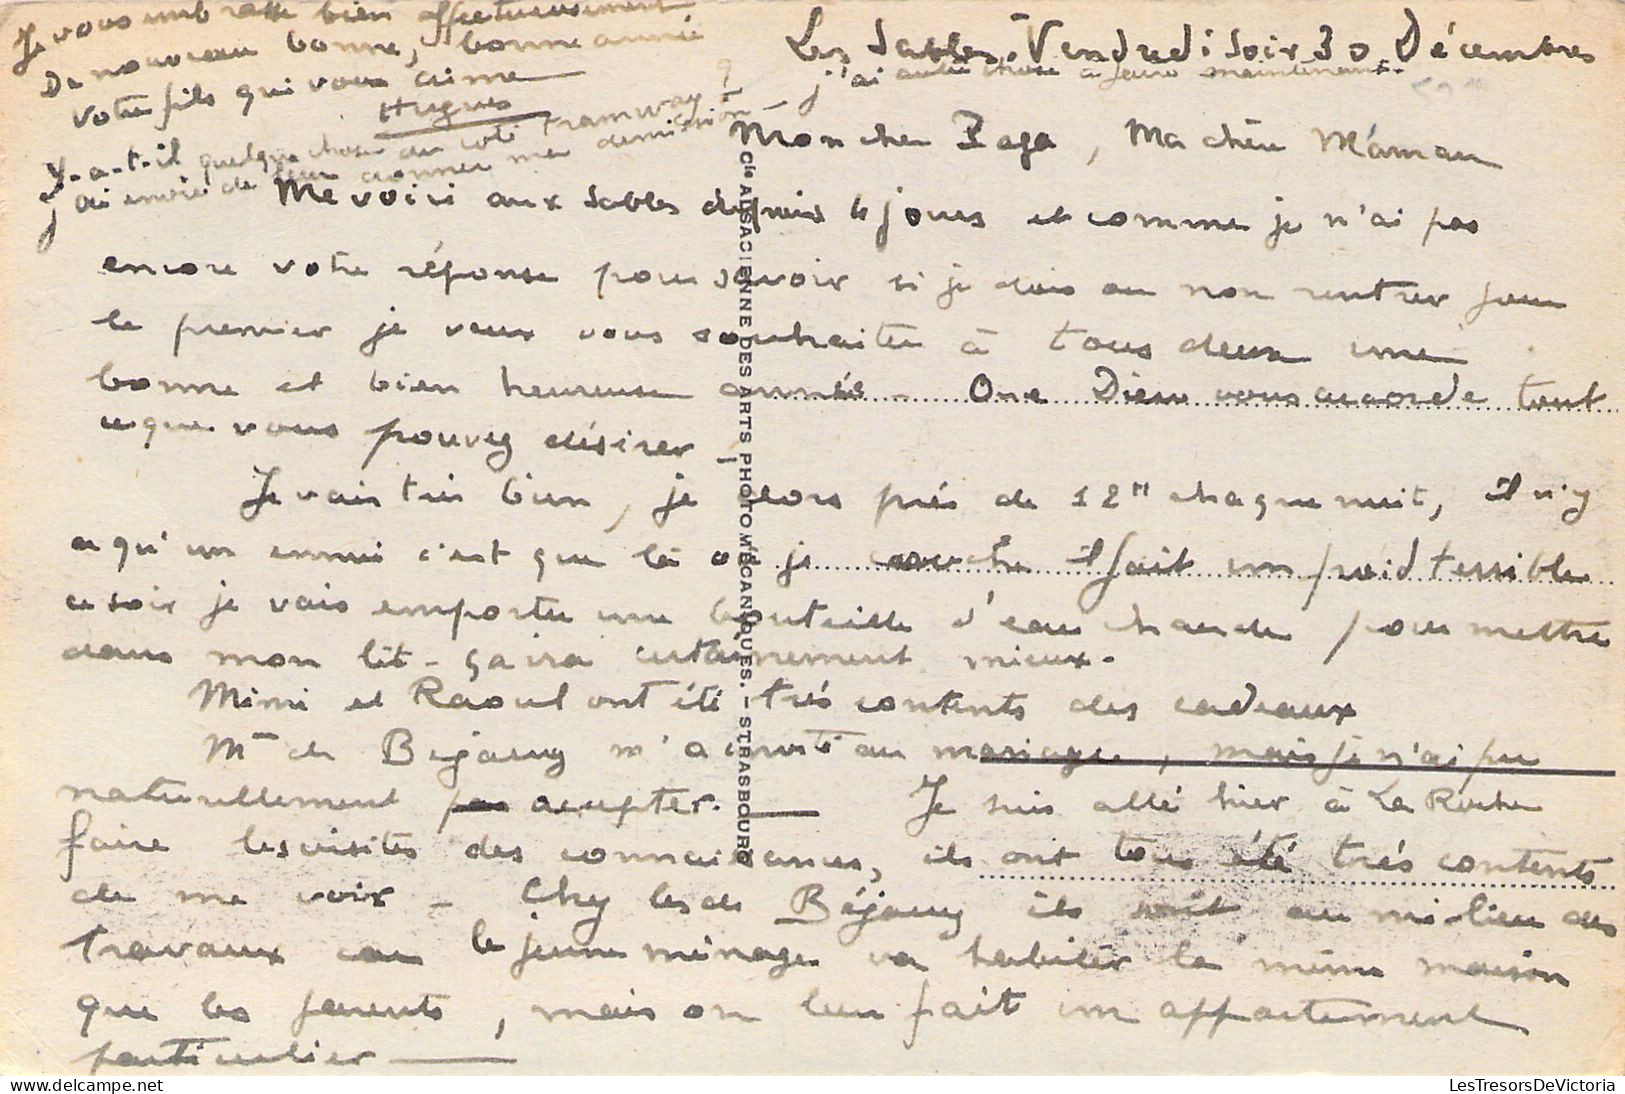 Les Sables. Vendredi soir 30 Décembre
j'ai autre chose à faire maintenant.
Mon cher Papa, Ma chère Maman
Me voici aux Sables depuis 4 jours et comme je n'ai pas
encore votre réponse pour savoir si je dois ou non rentrer pour
le premier je veux vous souhaiter à tous deux une
bonne et bien heureuse année. Que Dieu vous accorde tout
ce que vous pouvez désirer _
Je vais très bien, je dors près de 12 H chaque nuit, il n'y
a qu'un ennui c'est que là où je couche il fait un froid terrible
ce soir je vais emporter une bouteille d'eau chaude pour mettre
dans mon lit - ça ira certainement mieux.
Mimi et Raoul ont été très contents des cadeaux
Mme de Béjarry m'a invité au mariage, mais je n'ai pu
naturellement pas accepter. — Je suis allé hier à La Roche
faire les visites des connaissances, ils ont tous été très contents
de me voir - Chez les de Béjarry ils sont au milieu des
travaux car le jeune ménage va habiter la même maison
que les parents, mais on leur fait un appartement
particulier —
Je vous embrasse bien affectueusement
De nouveau bonne, bonne année
votre fils qui vous aime
Hugues
Y-a-t-il quelque chose du coté tramway?
j'ai envie de leur donner ma démission
Cie ALSACIENNE DES ARTS PHOTOMÉCANIQUES. — STRASBOURG
LesTresorsDeVictoria